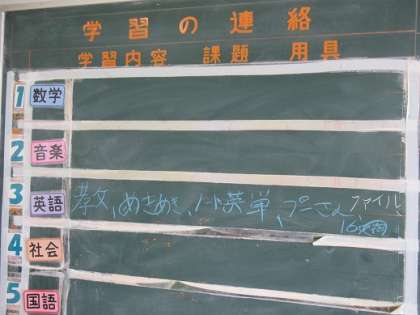 学習の連絡
学習内容 課題 用具
1 数学
2 音楽
3 英語 教、めきめき、ノート、英単、プーさん、ファイル
4 社会
5 国語